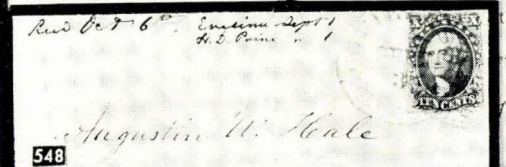 Recd Oct 6th. Encinu Sept 1
H. D. Paine " 1
TEN CENTS
Augustin W. Hale
548